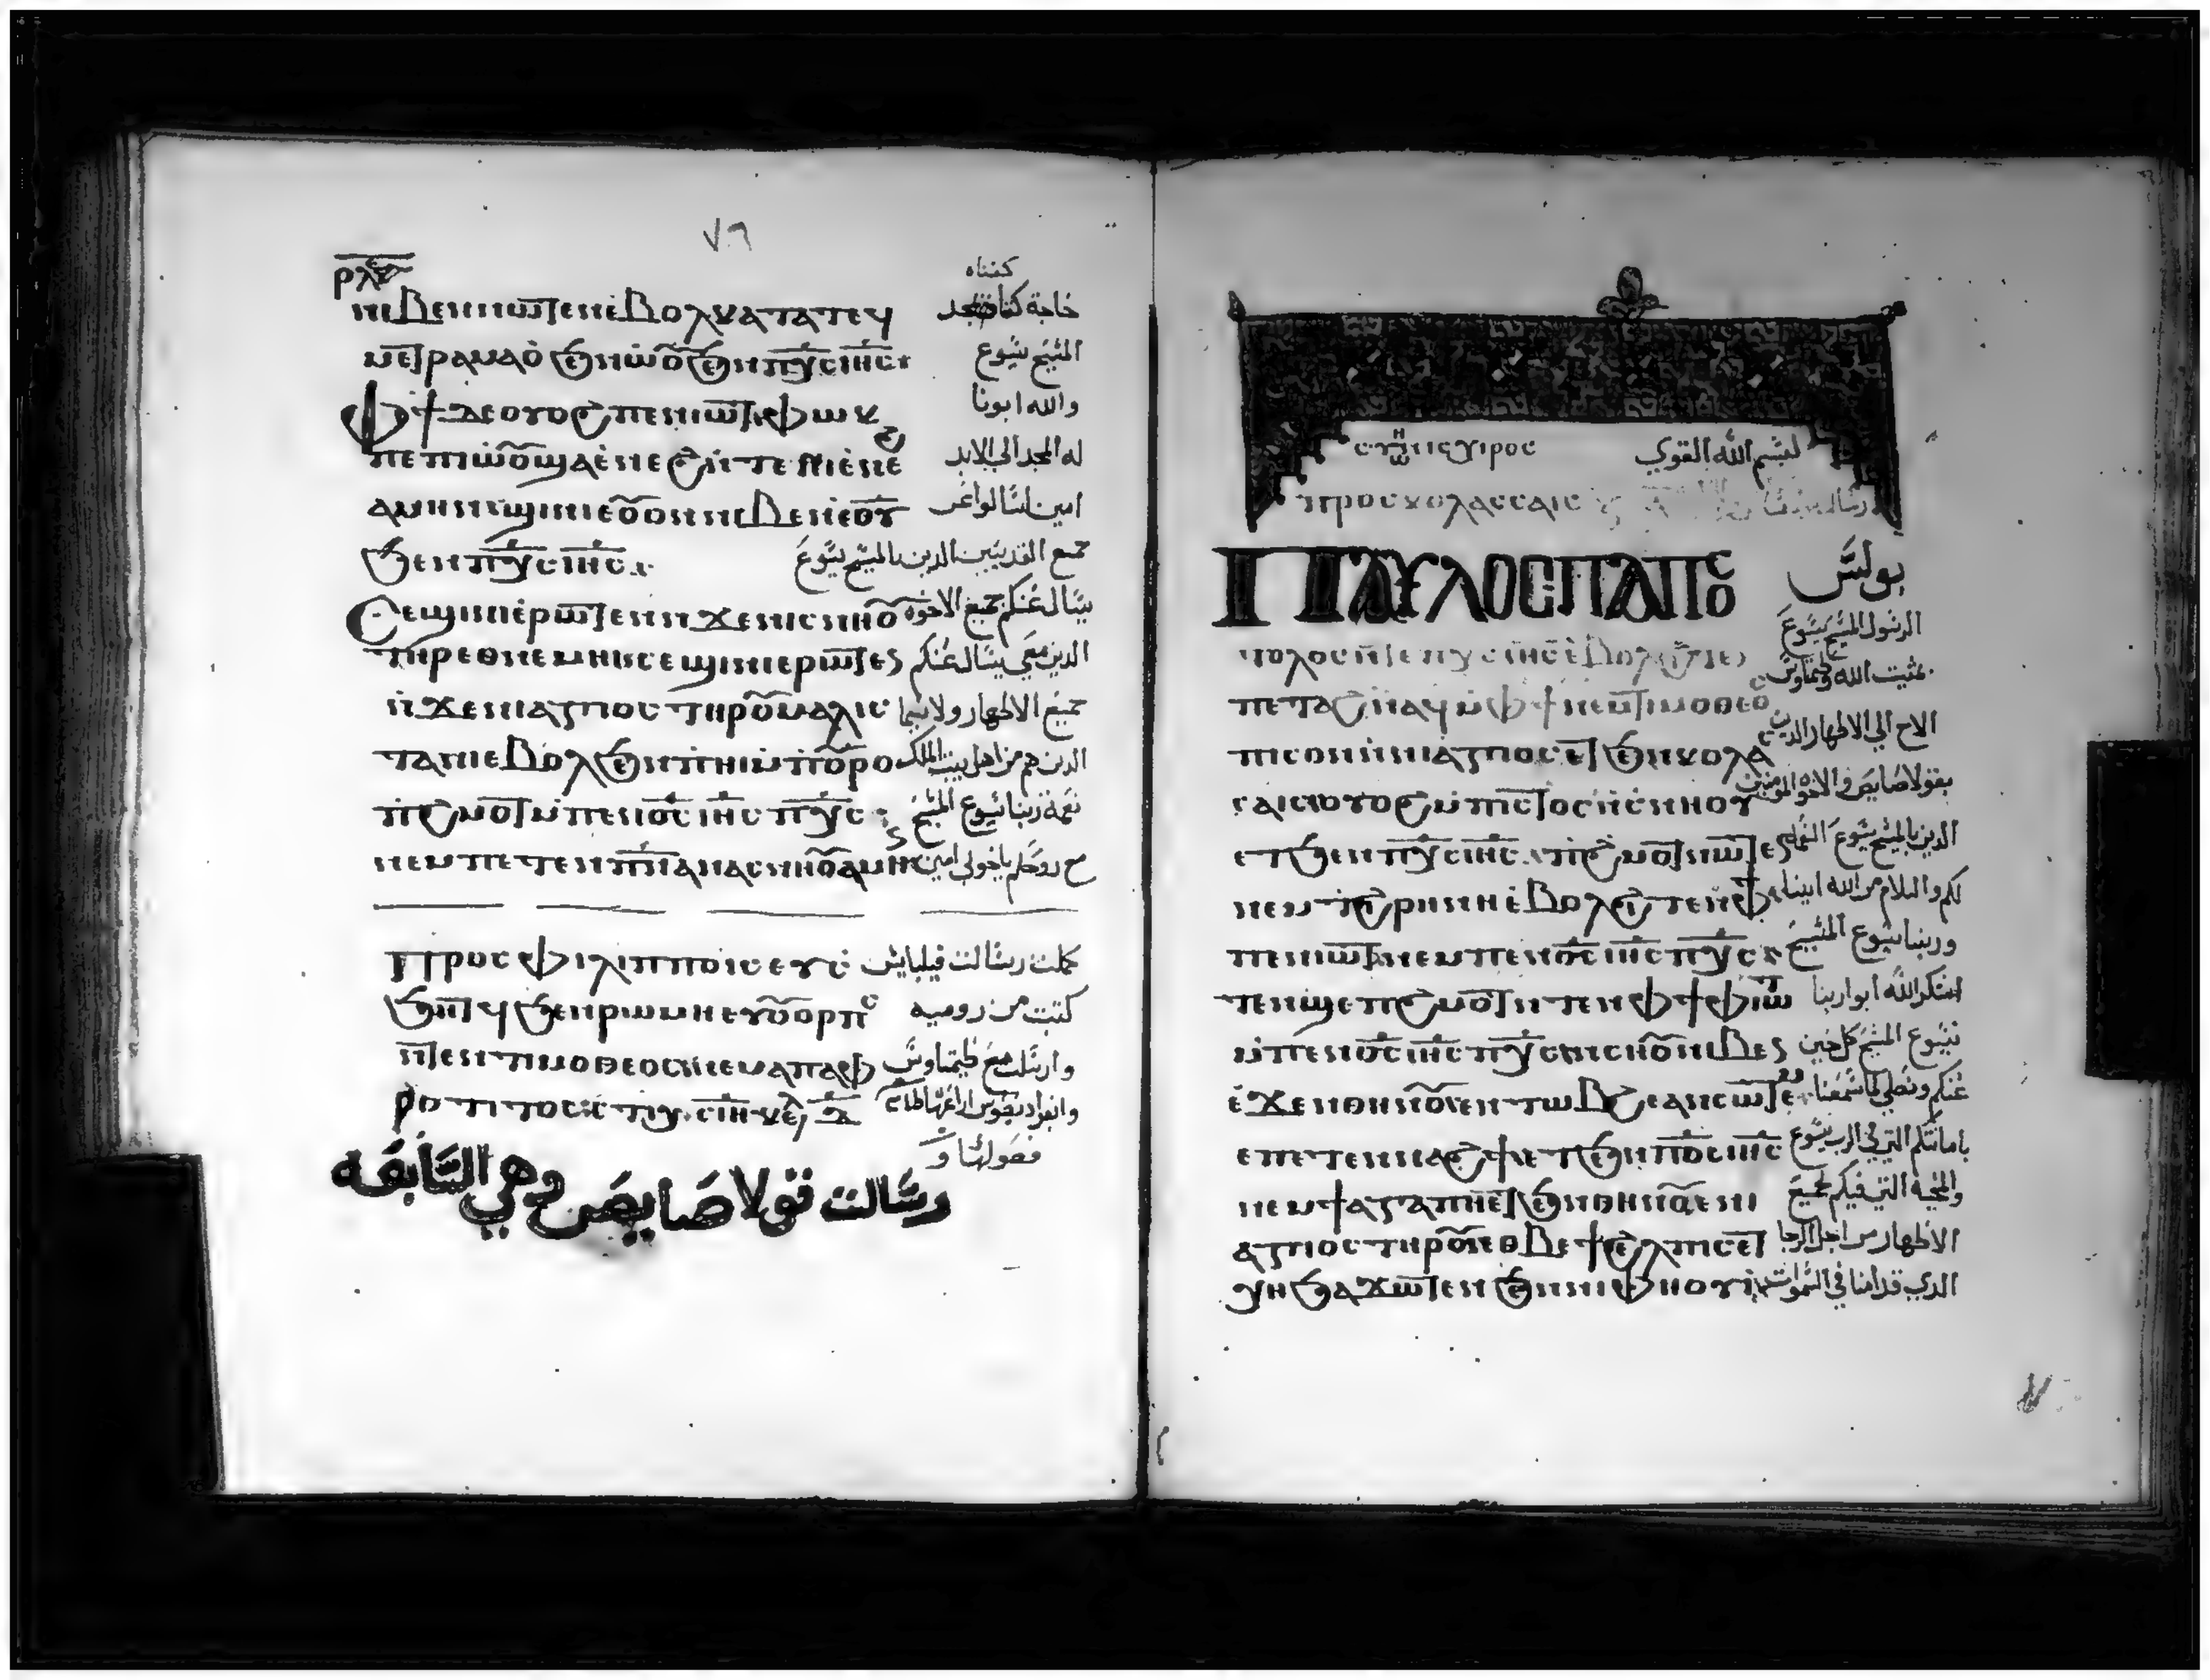 ٧٩
ⲣⲗⲉ
كغناه
ⲛⲓⲃⲉⲛ ⲛⲱⲧⲉⲛ ⲉⲃⲟⲗ ⲕⲁⲧⲁ ⲧⲉϥ خاجة
ⲙⲉⲧⲣⲁⲙⲁⲟ ϧⲉⲛ ⲱⲟⲩ ϧⲉⲛ ⲡⲭⲥ ⲓⲏⲥ المسَيح يسَوع
ⲫϯ ⲇⲉ ⲟⲩⲟϩ ⲡⲉⲛⲓⲱⲧ ⲫⲱϥ والله ابونا
ⲡⲉ ⲡⲓⲱⲟⲩ ϣⲁ ⲉⲛⲉϩ ⲛⲧⲉ ⲛⲓⲉⲛⲉϩ له المجد الي الابد
ⲁⲙⲏⲛ ϣⲓⲛⲓ ⲉⲟⲩⲟⲛ ⲛⲓⲃⲉⲛ ⲉⲑⲟⲩ امين اسَالوا عَن
ϧⲉⲛ ⲡⲭⲥ ⲓⲏⲥ جميع القديسَين الدين بالمسَيح يسَوع
ⲥⲉϣⲓⲛⲓ ⲉⲣⲱⲧⲉⲛ ⲛϫⲉ ⲛⲓⲥⲛⲏⲟⲩ يسَال عَنكم جميع الاخوه
ⲧⲏⲣⲟⲩ ⲉⲑⲛⲉⲙⲏⲓ ⲥⲉϣⲓⲛⲓ ⲉⲣⲱⲧⲉⲛ الدين معَي يسَال عَنكم
ⲛϫⲉ ⲛⲓⲁⲅⲓⲟⲥ ⲧⲏⲣⲟⲩ ⲙⲁⲗⲓⲥ جميع الاطهار ولا سيما
ⲧⲁ ⲛⲓⲉⲃⲟⲗ ϧⲉⲛ ⲡⲏⲓ ⲙⲡⲟⲩⲣⲟ الدين هم من اهل بيت الملك
ⲡϩⲙⲟⲧ ⲙⲡⲉⲛⲟⲥ ⲓⲏⲥ ⲡⲭⲥ نعَمة ربنا يسَوع المسَيح
ⲛⲉⲙ ⲡⲉⲧⲉⲛⲡⲛⲁ ⲛⲁⲥⲛⲏⲟⲩ ⲁⲙⲏⲛ مع روحكم ياخوتي امين
ⲡⲣⲟⲥ ⲫⲓⲗⲓⲡⲡⲟⲓⲥ كملت رسَالت فيلبايس
ϧⲉⲛ ⲣⲱⲙⲏ ⲉⲩⲟⲩⲟⲣⲡⲥ كتبت من روميه
ⲛⲧⲉⲛ ⲧⲓⲙⲟⲑⲉⲟⲥ ⲛⲉⲙ ⲉⲡⲁⲫ وارسَلت معَ طيمتاوسَ
ⲣⲟⲧⲓⲧⲟⲥ
فصَولهَا
رسَالت قولاصَايصَ وهي السَابعَه
ⲥⲩⲛ ⲑⲱ ⲓⲥⲭⲩⲣⲟⲥ لبسَم الله القوي
ⲡⲣⲟⲥ ⲕⲟⲗⲁⲥⲥⲁⲓⲥ
ⲡⲁⲩⲗⲟⲥ ⲡⲁⲡⲟⲥ بولسَ
ⲧⲟⲗⲟⲥ ⲛⲧⲉ ⲡⲭⲥ ⲓⲏⲥ ⲉⲃⲟⲗ ϩⲓⲧⲉⲛ الرسَول المسَيح يسَوعَ
ⲡⲉⲧⲉϩⲛⲁϥ ⲙⲫϯ ⲛⲉⲙ ⲧⲓⲙⲟⲑⲉⲟⲥ بمشيت الله وطيماوسَ
ⲡⲓⲥⲟⲛ ⲛⲛⲓⲁⲅⲓⲟⲥ ⲉⲧϧⲉⲛ ⲕⲟⲗⲁ الاخ الي الاطهار الدين
ⲥⲁⲓⲥ ⲟⲩⲟϩ ⲙⲡⲓⲥⲧⲟⲥ ⲛⲥⲛⲏⲟⲩ بقولاصَايصَ والاخوه المومنين
ⲉⲧϧⲉⲛ ⲡⲭⲥ ⲓⲏⲥ ⲡϩⲙⲟⲧ ⲛⲱⲧⲉⲛ الدين بالمسَيح يسَوعَ النعَمه
ⲛⲉⲙ ⲧϩⲓⲣⲏⲛⲏ ⲉⲃⲟⲗ ϩⲓⲧⲉⲛ ⲫϯ لكم والسَلام من الله ابينا
ⲡⲉⲛⲓⲱⲧ ⲛⲉⲙ ⲡⲉⲛⲟⲥ ⲓⲏⲥ ⲡⲭⲥ وربنا يسَوع المسَيح
ⲧⲉⲛϣⲉⲡϩⲙⲟⲧ ⲛⲧⲉⲛ ⲫϯ ⲫⲓⲱⲧ اسَتكر الله ابو اربنا
ⲙⲡⲉⲛⲟⲥ ⲓⲏⲥ ⲡⲭⲥ ⲛⲥⲏⲟⲩ ⲛⲓⲃⲉⲛ يسَوع المسَيح كل حَين
ⲉϫⲉⲛ ⲑⲏⲛⲟⲩ ⲉⲛⲧⲱⲃϩ ⲉⲁⲛⲥⲱⲧⲉⲙ عَنكم ونصَلي لما سَمعَنا
ⲉⲡⲉⲧⲉⲛⲛⲁϩϯ ⲉⲧϧⲉⲛ ⲡⲟⲥ ⲓⲏⲥ بامانتكم التي في الرب يسَوع
ⲛⲉⲙ ϯⲁⲅⲁⲡⲏ ⲉⲧϧⲉⲛ ⲑⲏⲛⲟⲩ ⲉⲛⲓ والمحَبه التي فيكم لجميعَ
ⲁⲅⲓⲟⲥ ⲧⲏⲣⲟⲩ ⲉⲑⲃⲉ ϯϩⲉⲗⲡⲓⲥ ⲉⲧ الاطهار من اجل الرجا
ⲭⲏ ϧⲁϫⲱⲧⲉⲛ ϧⲉⲛ ⲛⲓⲫⲏⲟⲩⲓ الدي قدامنا في السَموات